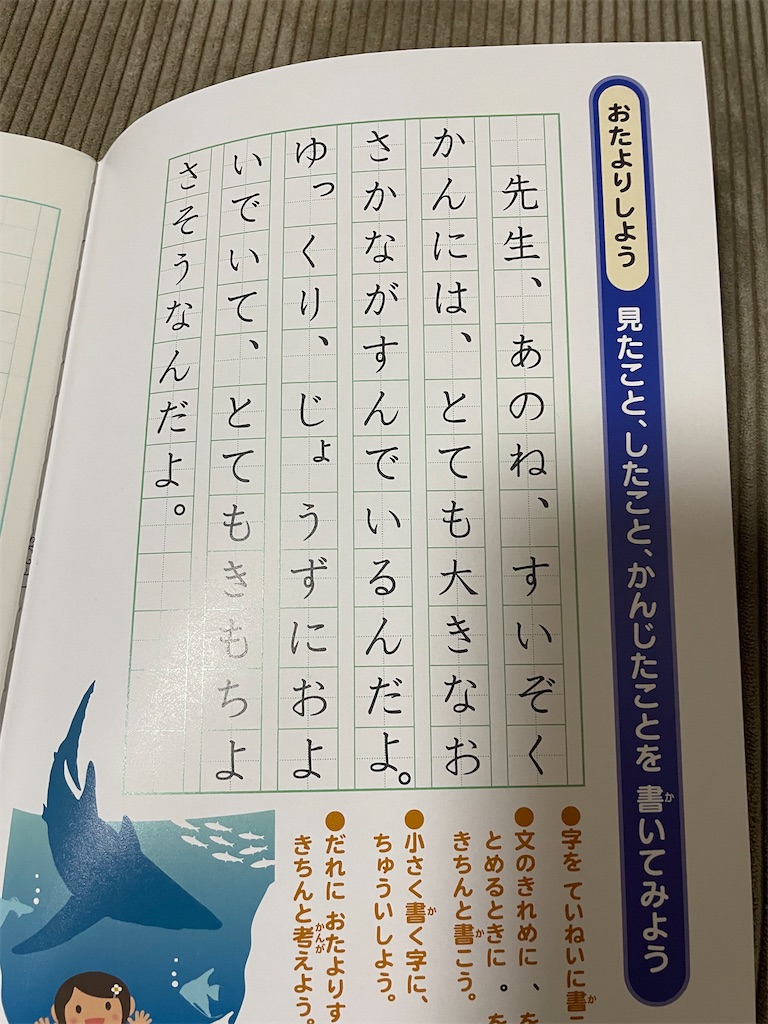 おたよりしよう 見たこと、したこと、かんじたことを 書いてみよう
先生、あのね、すいぞく
かんには、とても大きなお
さかながすんでいるんだよ。
ゆっくり、じょうずにおよ
いでいて、とてもきもちよ
さそうなんだよ。
●字を ていねいに書こ
●文のきれめに、を
とめるときに 。を
きちんと書こう。
●小さく書く字に、
ちゅういしよう。
●だれに おたよりす
きちんと考えよう。